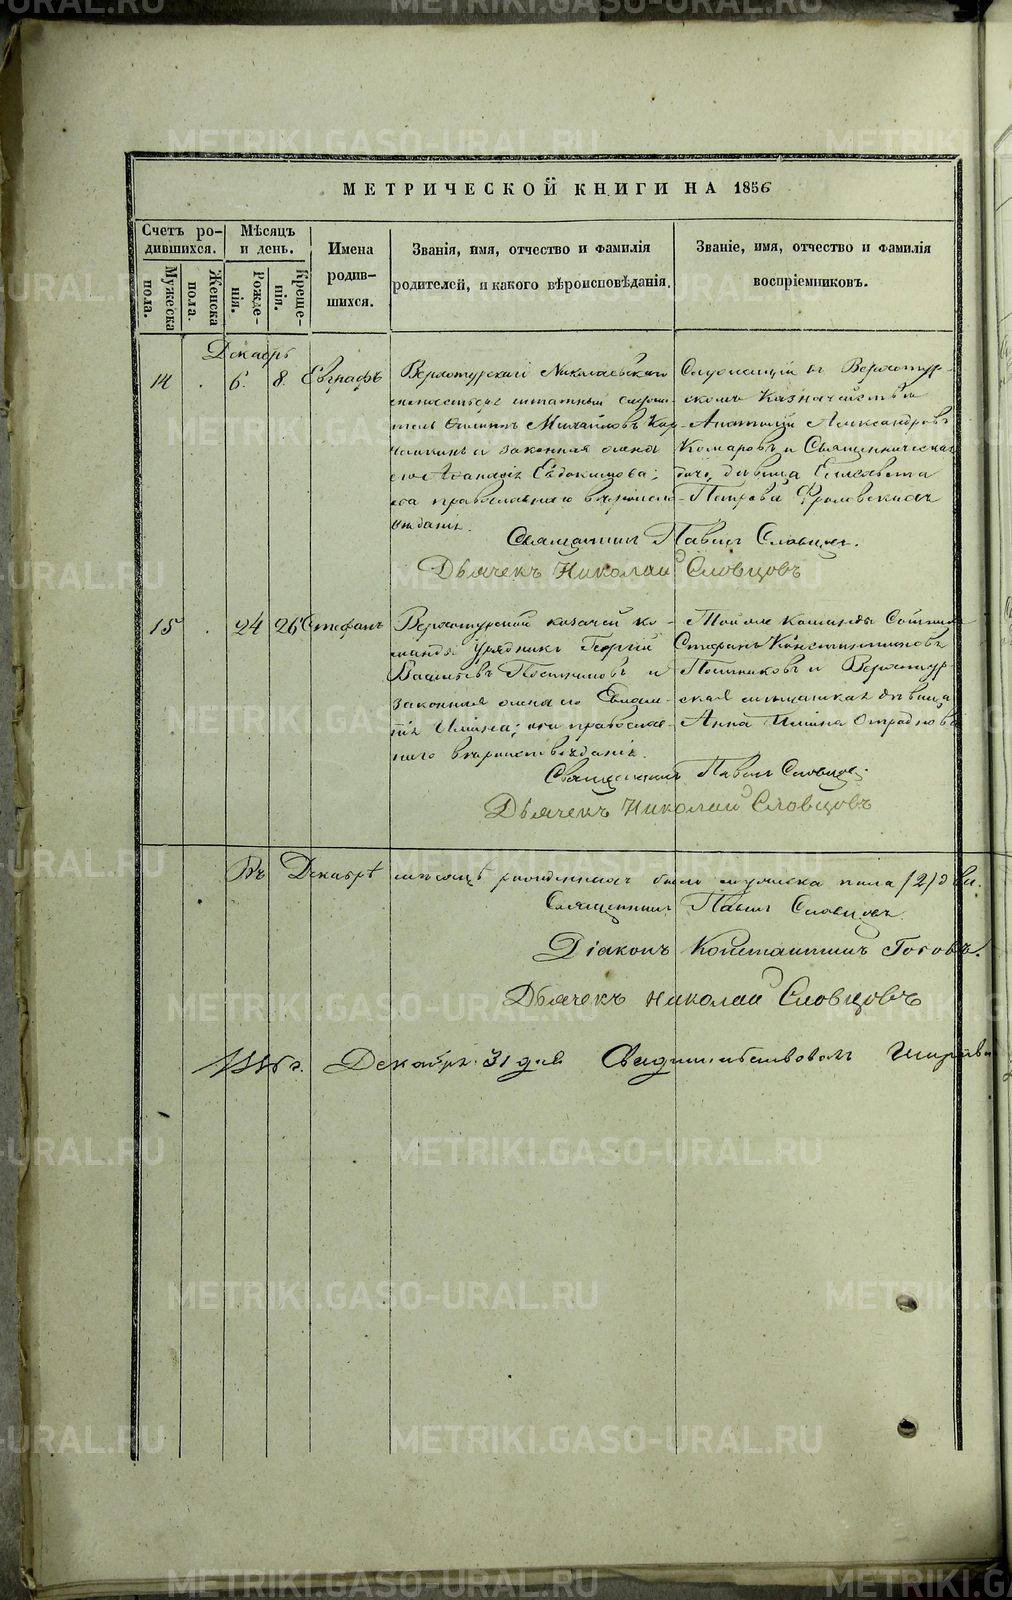 МЕТРИЧЕСКОЙ КНИГИ НА 1856
Счетъ ро-
дившихся.
Мужеска
пола.
Женска
пола.
Мѣсяцъ
и день.
Рожде-
нія.
Креще-
нія.
Имена
родив-
шихся.
Званія, имя, отчество и фамилія
родителей, и какого вѣроисповѣданія.
Званіе, имя, отчество и фамилія
воспріемниковъ.
Декабрь
14 . 6. 8. Евграфъ
Верхотурскаго Николаевскаго
монастыря штатный служи-
тель Филиппъ Михайловъ
и законная жена
его Евдокимова;
оба православнаго вѣроиспо-
вѣданія.
Служащій въ Верхотур-
скомъ Казначействѣ
Александровъ
Комаровъ и Священническая
дочь, дѣвица Елисавета
Петрова Фроловская
Священникъ Павелъ Словцовъ.
Дьячекъ Николай Словцовъ
15 . 24 26 Стефанъ
Верхотурской казачей ко-
манды урядникъ Георгій
Васильевъ Постниковъ и
законная жена его
Ильина; оба православ-
наго вѣроисповѣданія.
Той же команды
Стефанъ Константиновъ
Постниковъ и Верхотур-
ская мѣщанская дѣвица
Анна Ильина Отраднова
Священникъ Павелъ Словцовъ.
Дьячекъ Николай Словцовъ
Въ Декабрѣ мѣсяцѣ рожденныхъ было мужеска пола (2) два.
Священникъ Павелъ Словцовъ.
Діаконъ Константинъ Боговъ.
Дьячекъ Николай Словцовъ
1856 г. Декабря 31 дня Свидѣтельствовалъ
METRIKI.GASO-URAL.RU